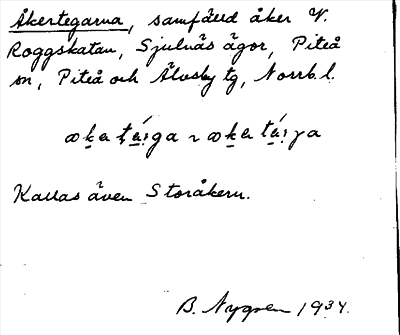 Åkertegarna, samfälld åker V.
Roggskatan, Sjulnäs ägor, Piteå
sn, Piteå och Älvsby tg, Norrb. l.
Kallas även Storåkern.
B. Nygren 1934.